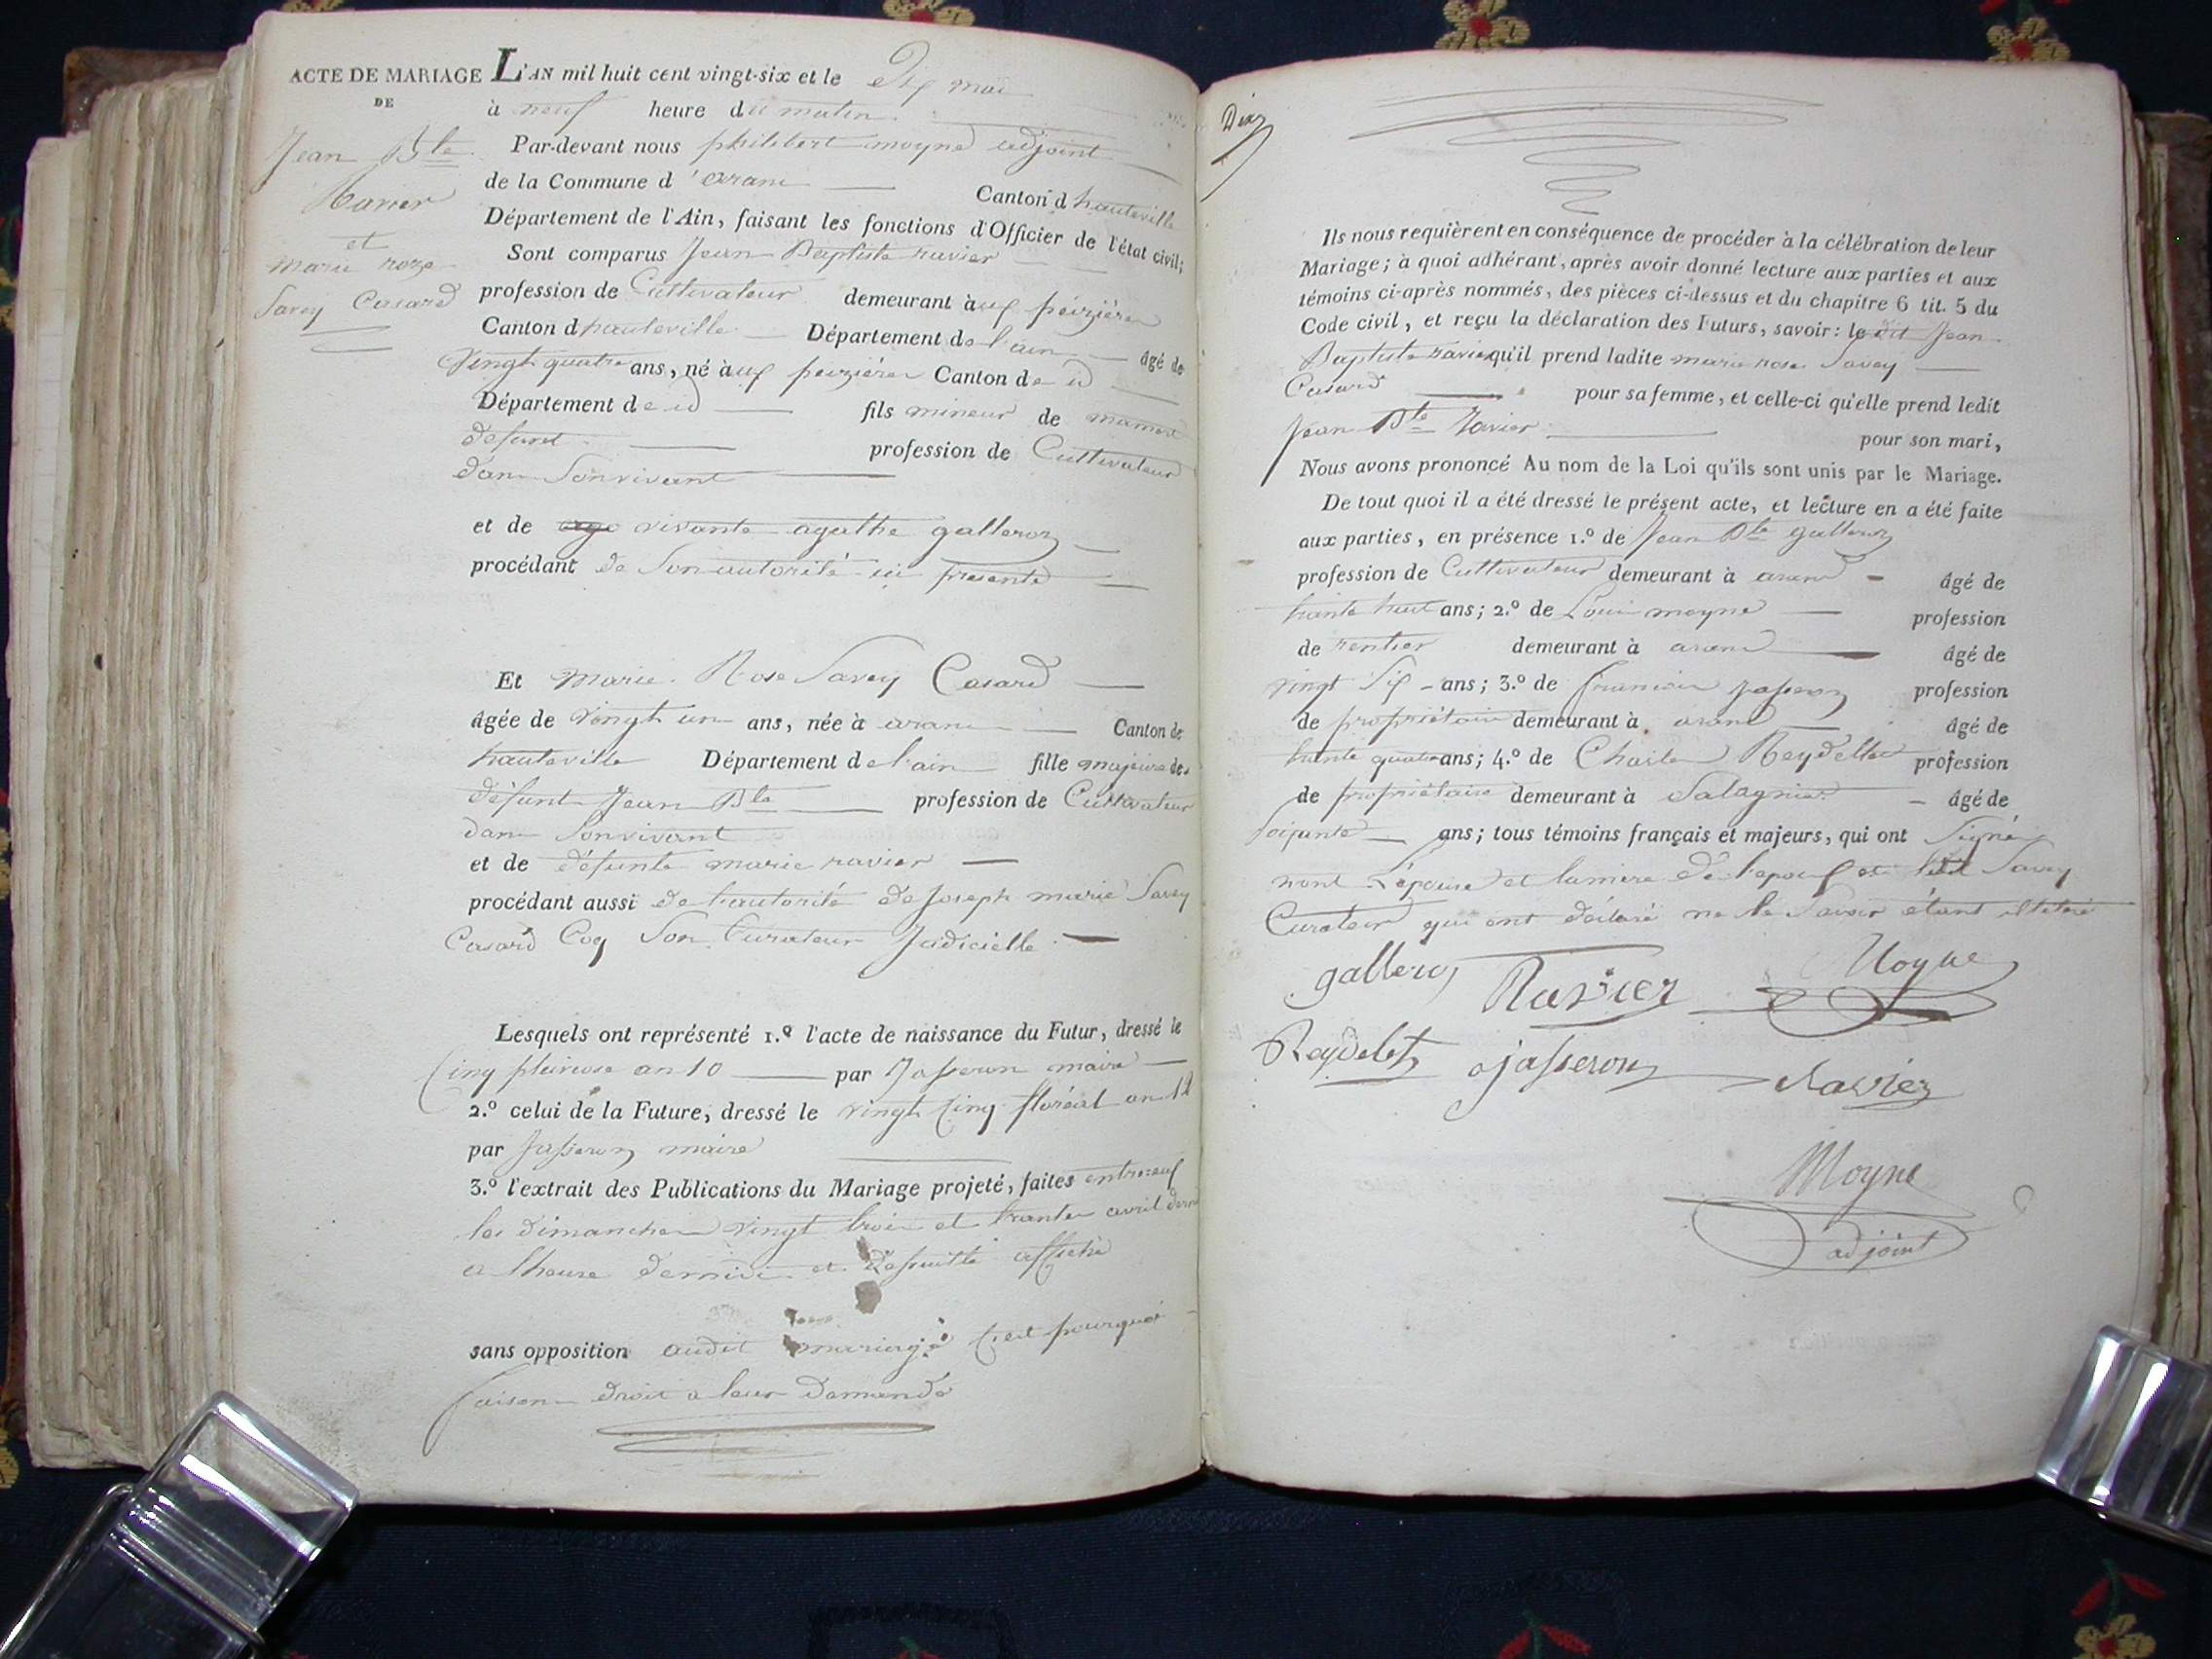 ACTE DE MARIAGE
DE
Jean Bte
Ravier
et
marie roze
Savey Casard
L'AN mil huit cent vingt-six et le Dix mai
à neuf heure du matin
Par-devant nous philibert moyne adjoint
de la Commune d'aranc Canton d'hauteville
Département de l'Ain, faisant les fonctions d'Officier de l'état civil;
Sont comparus Jean Baptiste ravier
profession de Cultivateur demeurant à aux peizières
Canton d'hauteville Département de l'ain âgé de
vingt quatre ans, né à aux peizières Canton de id
Département de id fils mineur de mamert
défunt profession de Cultivateur
dans Son vivant
et de vivante agathe galleron
procédant de Son autorité ici présente
Et Marie Rose Savey Casard
âgée de vingt un ans, née à aranc Canton de
hauteville Département de l'ain fille majeure de
défunt Jean Bte profession de Cultivateur
dans Son vivant
et de défunte marie ravier
procédant aussi de l'autorité de Joseph marie Savey
Casard Coq Son Curateur Judicielle
Lesquels ont représenté 1.º l'acte de naissance du Futur, dressé le
Cinq pluviose an 10 par Jasseron maire
2.º celui de la Future, dressé le vingt Cinq floréal an 12
par Jasseron maire
3.º l'extrait des Publications du Mariage projeté, faites entre eux
les dimanches vingt trois et trante avril dern
a lheure de midi et de suitte affiché
sans opposition audit mariage C'est pourquoi
faisons droit a leur demande
Dix
Ils nous requièrent en conséquence de procéder à la célébration de leur
Mariage; à quoi adhérant, après avoir donné lecture aux parties et aux
témoins ci-après nommés, des pièces ci-dessus et du chapitre 6 tit. 5 du
Code civil, et reçu la déclaration des Futurs, savoir: le dit Jean
Baptiste ravier qu'il prend ladite marie rose Savey
Casard pour sa femme, et celle-ci qu'elle prend ledit
Jean Bte Ravier pour son mari,
Nous avons prononcé Au nom de la Loi qu'ils sont unis par le Mariage.
De tout quoi il a été dressé le présent acte, et lecture en a été faite
aux parties, en présence 1.º de Jean Bte galleron
profession de Cultivateur demeurant à aranc âgé de
trante huit ans; 2.º de Louis moyne profession
de rentier demeurant à aranc âgé de
vingt Six ans; 3.º de francois Jasseron profession
de propriétaire demeurant à aranc âgé de
trante quatre ans; 4.º de Charles Reydellet profession
de propriétaire demeurant à Salagnier âgé de
Soixante ans; tous témoins français et majeurs, qui ont Signé
nont L'épouse et la mère de l'epoux et ledit Savey
Curateur qui ont déclaré ne le Savoir étant illitéré
galleron Ravier Moyne
Reydelet Jasseron Ravier
Moyne
adjoint